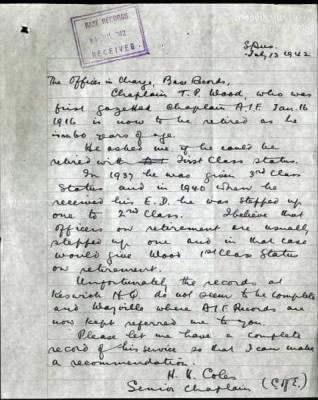 BASE RECORDS
1942
RECEIVED.
S. Aus.
July 13 1942
The Officer in Charge, Base Records,
Chaplain T. P. Wood, who was
first gazetted Chaplain A.I.F. Jan. 16
1916 is now to be retired as he
is 60 years of age.
He asked me if he could be
retired with First Class Status.
In 1937 he was given 3rd Class
Status and in 1940 when he
received his E.D. he was stepped up
one to 2nd Class. I believe that
officers on retirement are usually
stepped up one and in that case
would give Wood 1st Class Status
on retirement.
Unfortunately the records at
Keswick H.Q. do not seem to be complete
and Wayville where A.I.F. Records are
now kept referred me to you.
Please let me have a complete
record of his service so that I can make
a recommendation.
H. K. Coles
Senior Chaplain